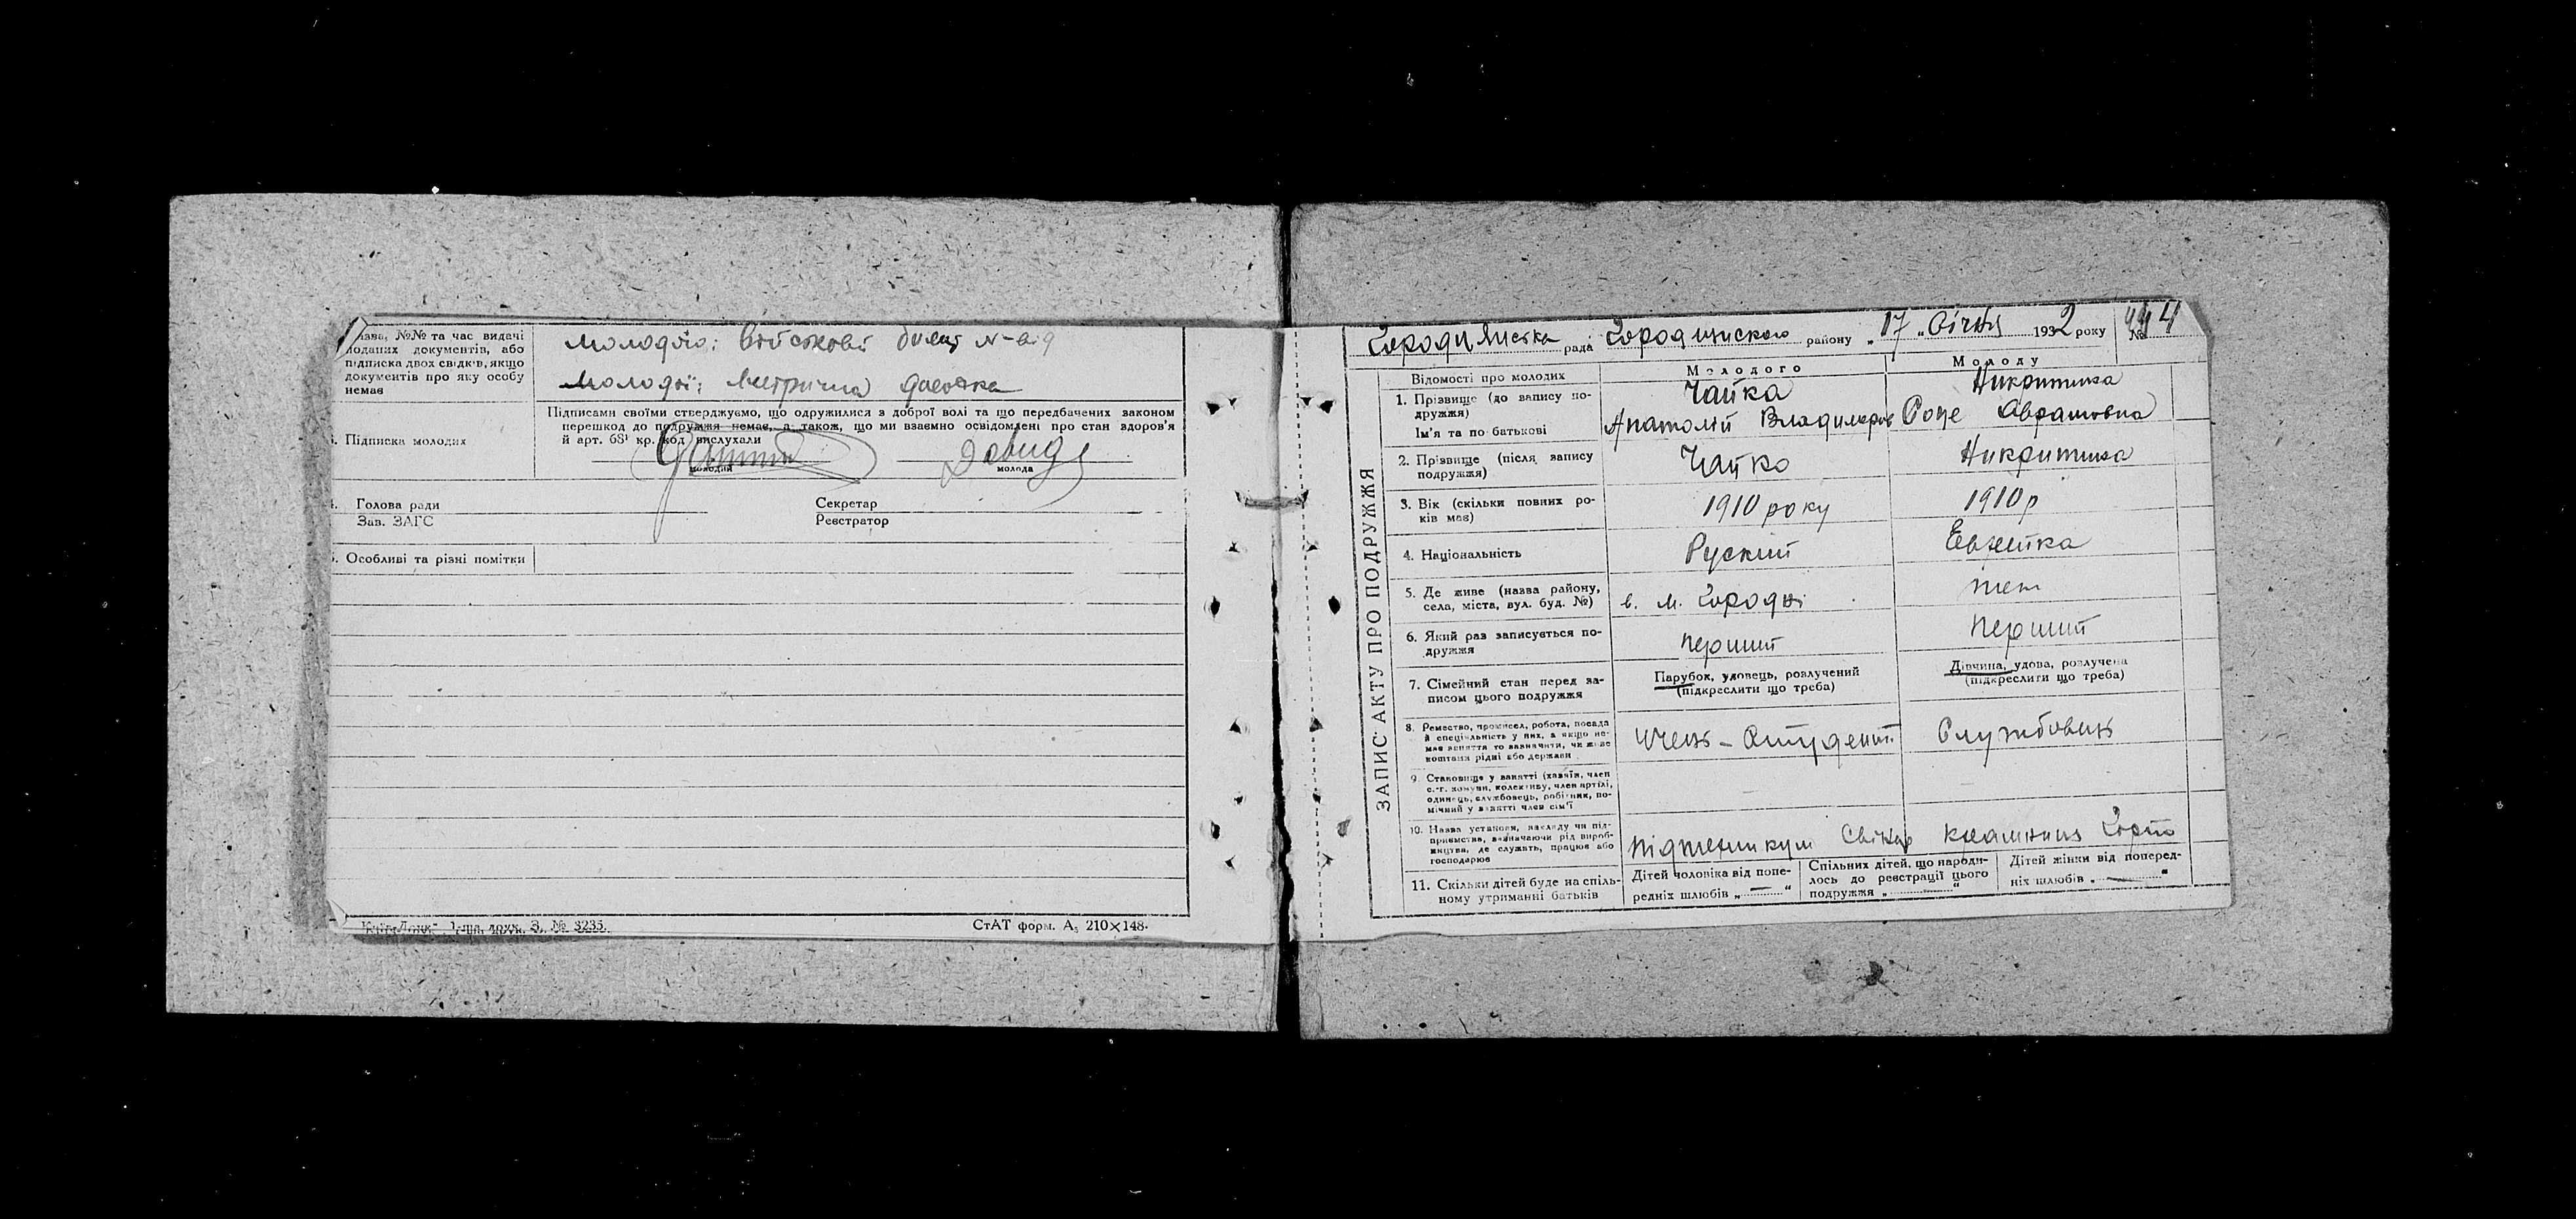 Назва, №№ та час видачі
поданих документів, або
підписка двох свідків, якщо
документів про яку особу
немає
Молодого: Військовий білет №
Молодої: Метрична
Підписка молодих
Підписами своїми стверджуємо, що одружилися з доброї волі та що передбачених законом
перешкод до подружжя немає, а також, що ми взаємно освідомлені про стан здоров'я
й арт. 68¹ кр. код. вислухали
молодий
молода
Голова ради
Зав. ЗАГС
Секретар
Реєстратор
Особливі та різні помітки
З. № 3235.
СтАТ форм. А₅ 210×148.
ЗАПИС АКТУ ПРО ПОДРУЖЖЯ
рада
району „17 „ Січня 1932 року № 4
Відомості про молодих
Молодого
Молоду
1. Прізвище (до запису по-
дружжя)
Чайка
Никритина
Ім'я та по батькові
Анатолий Владимиров
Розе Абрамовна
2. Прізвище (після запису
подружжя)
Чайко
Никритина
3. Вік (скільки повних ро-
ків має)
1910 року
1910 р
4. Національність
Руский
Еврейка
5. Де живе (назва району,
села, міста, вул. буд. №)
в. м. Городні
теж
6. Який раз записується по-
дружжя
перший
перший
7. Сімейний стан перед за-
писом цього подружжя
Парубок, удовець, розлучений
(підкреслити що треба)
Дівчина, удова, розлучена
(підкреслити що треба)
8. Ремество, промисел, робота, посада
й спеціяльність у них, а якщо не-
має заняття то зазначити, чи живе
коштами рідні або держави
Учень - Студент
Службовець
9. Становище у занятті (хазяїн, член
с.-г. комуни, колективу, член артілі,
одинець, службовець, робітник, по-
мічний у занятті член сім'ї
10. Назва установи, закладу чи під-
приємства, визначаючи рід вироб-
ництва, де служить, працює або
господарює
11. Скільки дітей буде на спіль-
ному утриманні батьків
Дітей чоловіка від попе-
редніх шлюбів „ — “
Спільних дітей, що народи-
лось до реєстрації цього
подружжя „ “
Дітей жінки від поперед-
ніх шлюбів „ — “